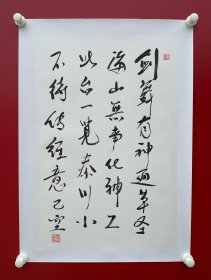 剑舞有神通草圣
海山无事化神工
此台一览秦川小
不待传经意已空